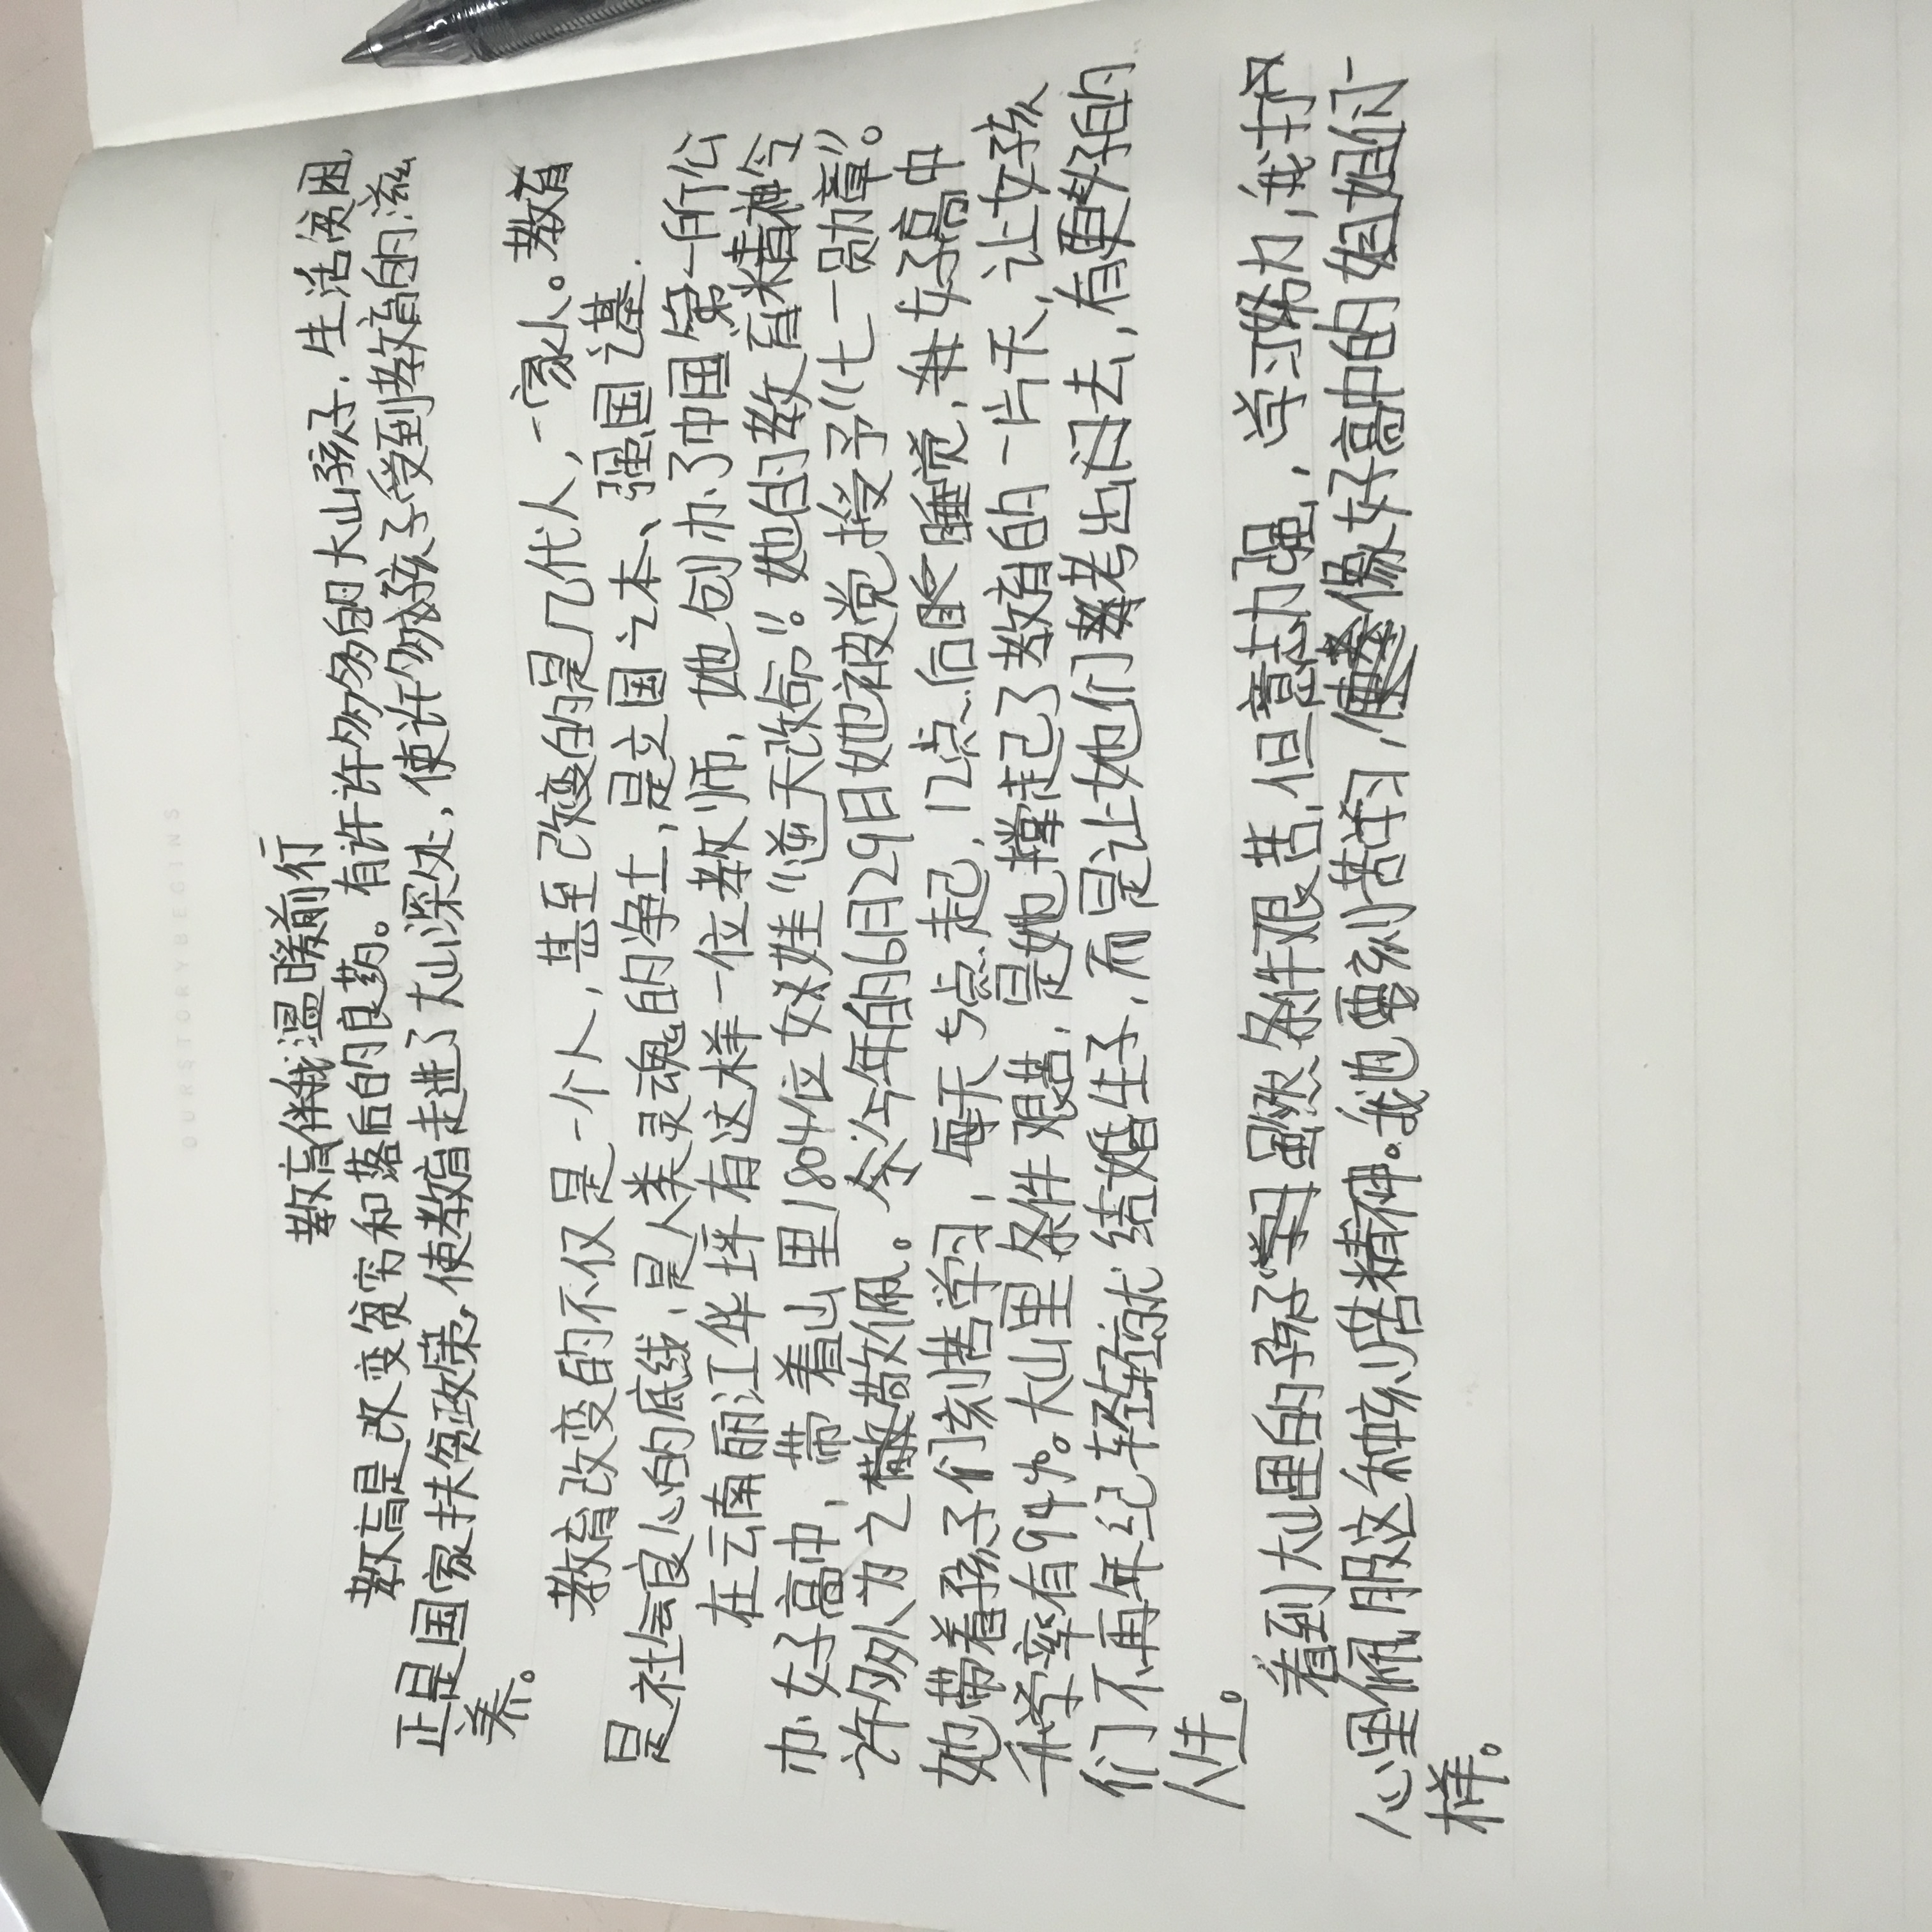 OURSTORYBEGINS
教育伴我温暖前行
教育是改变贫穷和落后的良药。有许许多多的大山孩子,生活贫困
正是国家扶贫政策,使教育走进了大山深处,使许多孩子受到教育的滋
养。
教育改变的不仅是一个人,甚至改变的是几代人,一家人。教育
是社会良心的底线,是人类灵魂的净土,是立国之本、强国之基.
在云南丽江华坪有这样一位教师,她创办了中国第一所公
办女子高中,带着山里1804位女娃“逆天改命”!她的教育精神令
许多人为之敬佩。今年的6月29日她被党授予“七一勋章”。
她带着孩子们刻苦学习,每天5点起,12点后睡觉,女子高中
升学率有94%。大山里条件艰苦,是她撑起了教育的一片天,让女孩
们不再年纪轻轻就结婚生子,而是让她们考出去,有更好的
人生。
看到大山里的孩子学习条件艰苦,但意志力强,学习努力,我打
心里佩服这种刻苦精神。我也要刻苦学习,像女子高中的姐姐们一
样。